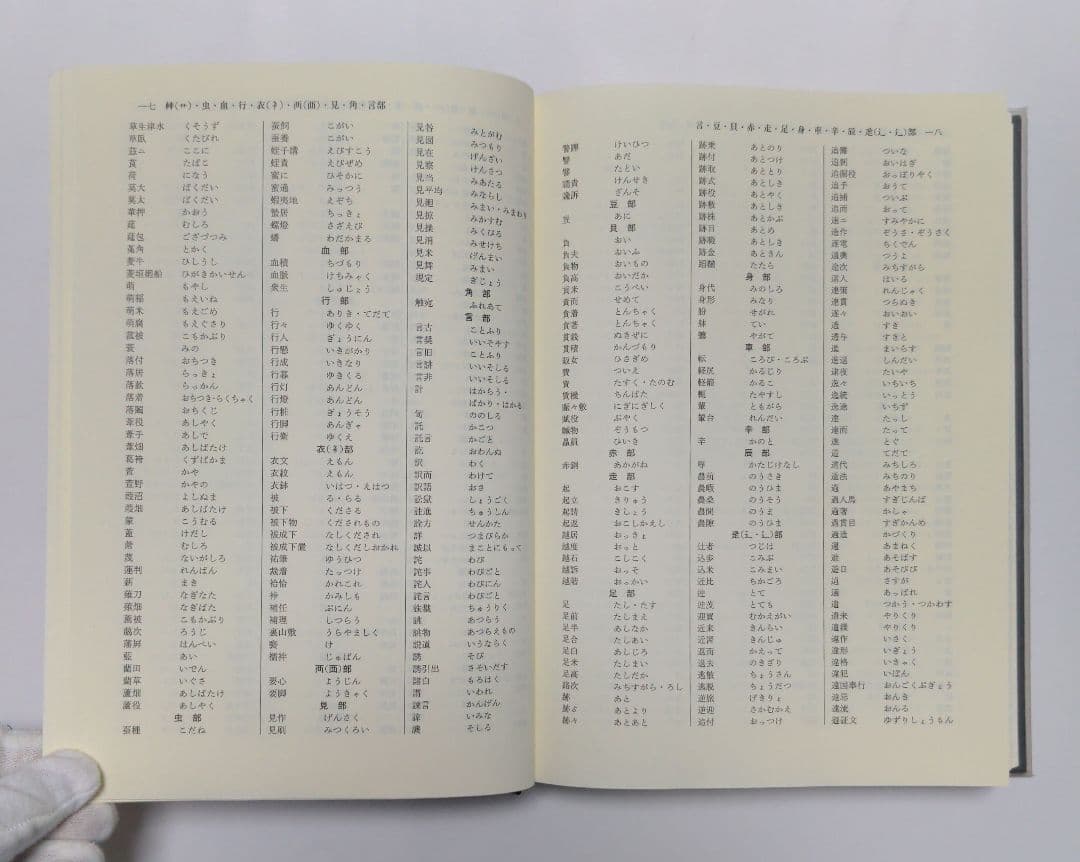 一七 艸(艹)・虫・血・行・衣(衤)・襾(覀)・見・角・言部
草生津水 くそうず
草臥 くたびれ
茲ニ ここに
莨 たばこ
荷 になう
莫大 ばくだい
莫太 ばくだい
華押 かおう
莚 むしろ
莚包 ござづつみ
菟角 とかく
菱牛 ひしうし
菱垣廻船 ひがきかいせん
萌 もやし
萌稲 もえいね
萌米 もえごめ
萌腐 もえぐさり
菰被 こもかぶり
蓑 みの
落付 おちつき
落居 らっきょ
落款 らっかん
落着 おちつき・らくちゃく
落闐 おちくじ
葦役 あしやく
葦子 あしで
葦畑 あしばたけ
葛袴 くずばかま
萱 かや
萱野 かやの
葭沼 よしぬま
葭畑 あしばたけ
蒙 こうむる
蓋 けだし
蓆 むしろ
蔑 ないがしろ
蓮判 れんばん
薪 まき
薙刀 なぎなた
薙畑 なぎばた
薦被 こもかぶり
藹次 ろうじ
藩屏 はんぺい
藍 あい
藺田 いでん
藺草 いぐさ
蘆畑 あしばたけ
蘆役 あしやく
虫部
蚕種 こだね
蚕飼 こがい
蚕養 こがい
蛭子講 えびすこう
蛭責 えびぜめ
蜜に ひそかに
蜜通 みっつう
蝦夷地 えぞち
蟄居 ちっきょ
螺燈 さざえび
蟠 わだかまる
血部
血積 ちづもり
血脈 けちみゃく
衆生 しゅじょう
行部
行 ありき・てだて
行々 ゆくゆく
行人 ぎょうにん
行懸 いきがかり
行成 いきなり
行暮 ゆきくる
行灯 あんどん
行燈 あんどん
行粧 ぎょうそう
行脚 あんぎゃ
行衛 ゆくえ
衣(衤)部
衣文 えもん
衣紋 えもん
衣鉢 いはつ・えはつ
被 る・らる
被下 くださる
被下物 くだされもの
被成下 なしくだされ
被成下置 なしくだしおかれ
祐筆 ゆうひつ
裁着 たっつけ
袷恰 かれこれ
裃 かみしも
補任 ぶにん
補理 しつらう
裏山敷 うらやましく
褻 け
襦袢 じゅばん
襾(覀)部
要心 ようじん
要脚 ようきゃく
見部
見作 げんさく
見刷 みつくろい
見咎 みとがむ
見図 みつもり
見在 げんざい
見察 けんさつ
見当 みあたる
見平均 みならし
見廻 みまい・みまわり
見掠 みかすむ
見操 みくひる
見消 みせけち
見米 げんまい
見舞 みまい
規定 ぎじょう
角部
触宛 ふれあて
言部
言古 ことふり
言奨 いいそやす
言旧 ことふり
言誹 いいそしる
言非 いいそしる
計 はからう・
ばかり・はかる
訇 ののしる
託 かこつ
託言 かごと
訖 おわんぬ
訳 わく
訳而 わけて
訳語 おさ
訟獄 しょうごく
註進 ちゅうしん
詮方 せんかた
詳 つまびらか
誠以 まことにもって
詫 わび
詫事 わびごと
詫人 わびにん
詫言 わびごと
誅戮 ちゅうりく
誂 あつらう
誂物 あつらえもの
説道 いうならく
誘 そび
誘引出 さそいだす
諸白 もろはく
謂 いわれ
諌言 かんげん
諱 いみな
譏 そしる
言・豆・貝・赤・走・足・身・車・辛・辰・辵(辶・⻌)部 一八
警蹕 けいひつ
讐 あだ
譬 たとい
譴責 けんせき
讒訴 ざんそ
豆部
豈 あに
貝部
負 おい
負夫 おいふ
負物 おいもの
負高 おいだか
貢米 こうべい
責而 せめて
貪着 とんちゃく
貪著 とんちゃく
貫穀 ぬきぜに
貫積 かんづもり
販女 ひさぎめ
費 ついえ
資 たすく・たのむ
賃機 ちんばた
賑々敷 にぎにぎしく
賦役 ぶやく
贓物 ぞうもつ
贔屓 ひいき
赤部
赤銅 あかがね
走部
起 おこす
起立 きりゅう
起請 きしょう
起返 おこしかえし
越居 おっきょ
越度 おっと
越石 こしこく
越訴 おっそ
越階 おっかい
足部
足 たし・たす
足前 たしまえ
足半 あしなか
足合 たしあい
足白 あしじろ
足米 たしまい
足高 たしだか
路次 みちすがら・ろし
跡 あと
跡ゟ あとより
跡々 あとあと
跡乗 あとのり
跡付 あとつけ
跡取 あととり
跡式 あとしき
跡役 あとやく
跡敷 あとしき
跡株 あとかぶ
跡目 あとめ
跡職 あとしき
跡金 あときん
蹈鞴 たたら
身部
身代 みのしろ
身形 みなり
躮 せがれ
躰 てい
軈 やがて
車部
転 ころび・ころぶ
軽尻 かるじり
軽籠 かるこ
輒 たやすし
輩 ともがら
輦台 れんだい
辛部
辛 かのと
辰部
辱 かたじけなし
農前 のうさき
農暇 のうひま
農桑 のうそう
農間 のうま
農隙 のうひま
辵(辶・⻌)部
辻者 つじは
込歩 こみぶ
込米 こみまい
近比 ちかごろ
迚 とて
迚茂 とても
迎買 むかえがい
近来 きんらい
近習 きんじゅ
返而 かえって
退去 のきざり
逃散 ちょうさん
逃脱 ちょうだつ
逆旅 げきりょ
逆迎 さかむかえ
追付 おっつけ
追儺 ついな
追剥 おいはぎ
追掘役 おっぽりやく
追手 おうて
追捕 ついぶ
追而 おって
速ニ すみやかに
造作 ぞうさ・ぞうさく
逐電 ちくでん
通輿 つうよ
途次 みちすがら
這入 はいる
連雀 れんじゃく
連貫 つらぬき
逐々 おいおい
透 すき
透与 すきと
進 まいらす
進退 しんだい
逮夜 たいや
逸々 いちいち
逸統 いっとう
逸途 いちず
達 たっし
達而 たって
遂 とぐ
道 てだて
道代 みちしろ
道法 みちのり
過 あやまち
過人馬 すぎじんば
過著 かしゃ
過貫目 すぎかんめ
過造 かづくり
遍 あまねく
遊 あそばす
遊日 あそびび
遉 さすが
遖 あっぱれ
遣 つかう・つかわす
遣米 やりくり
遣繰 やりくり
違作 いさく
違形 いぎょう
違格 いきゃく
違犯 いぼん
遠国奉行 おんごくぶぎょう
遠忌 おんき
遠流 おんる
遜証文 ゆずりしょうもん